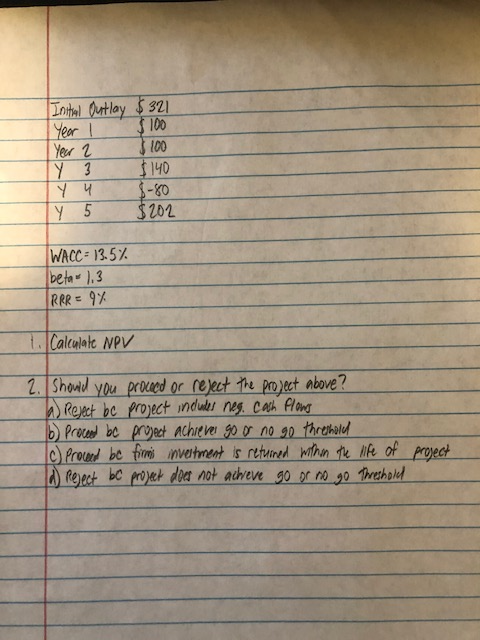 Initial Outlay $ 321
Year 1 $ 100
Year 2 $ 100
Y 3 $ 140
Y 4 $-80
Y 5 $ 202
WACC= 13.5%
beta= 1.3
RRR = 9%
1. Calculate NPV
2. Should you proceed or reject the project above?
a) Reject bc project includes neg. cash flows
b) Proceed bc project achieves go or no go threshold
c) Proceed bc firm's investment is returned within the life of project
d) Reject bc project does not achieve go or no go threshold